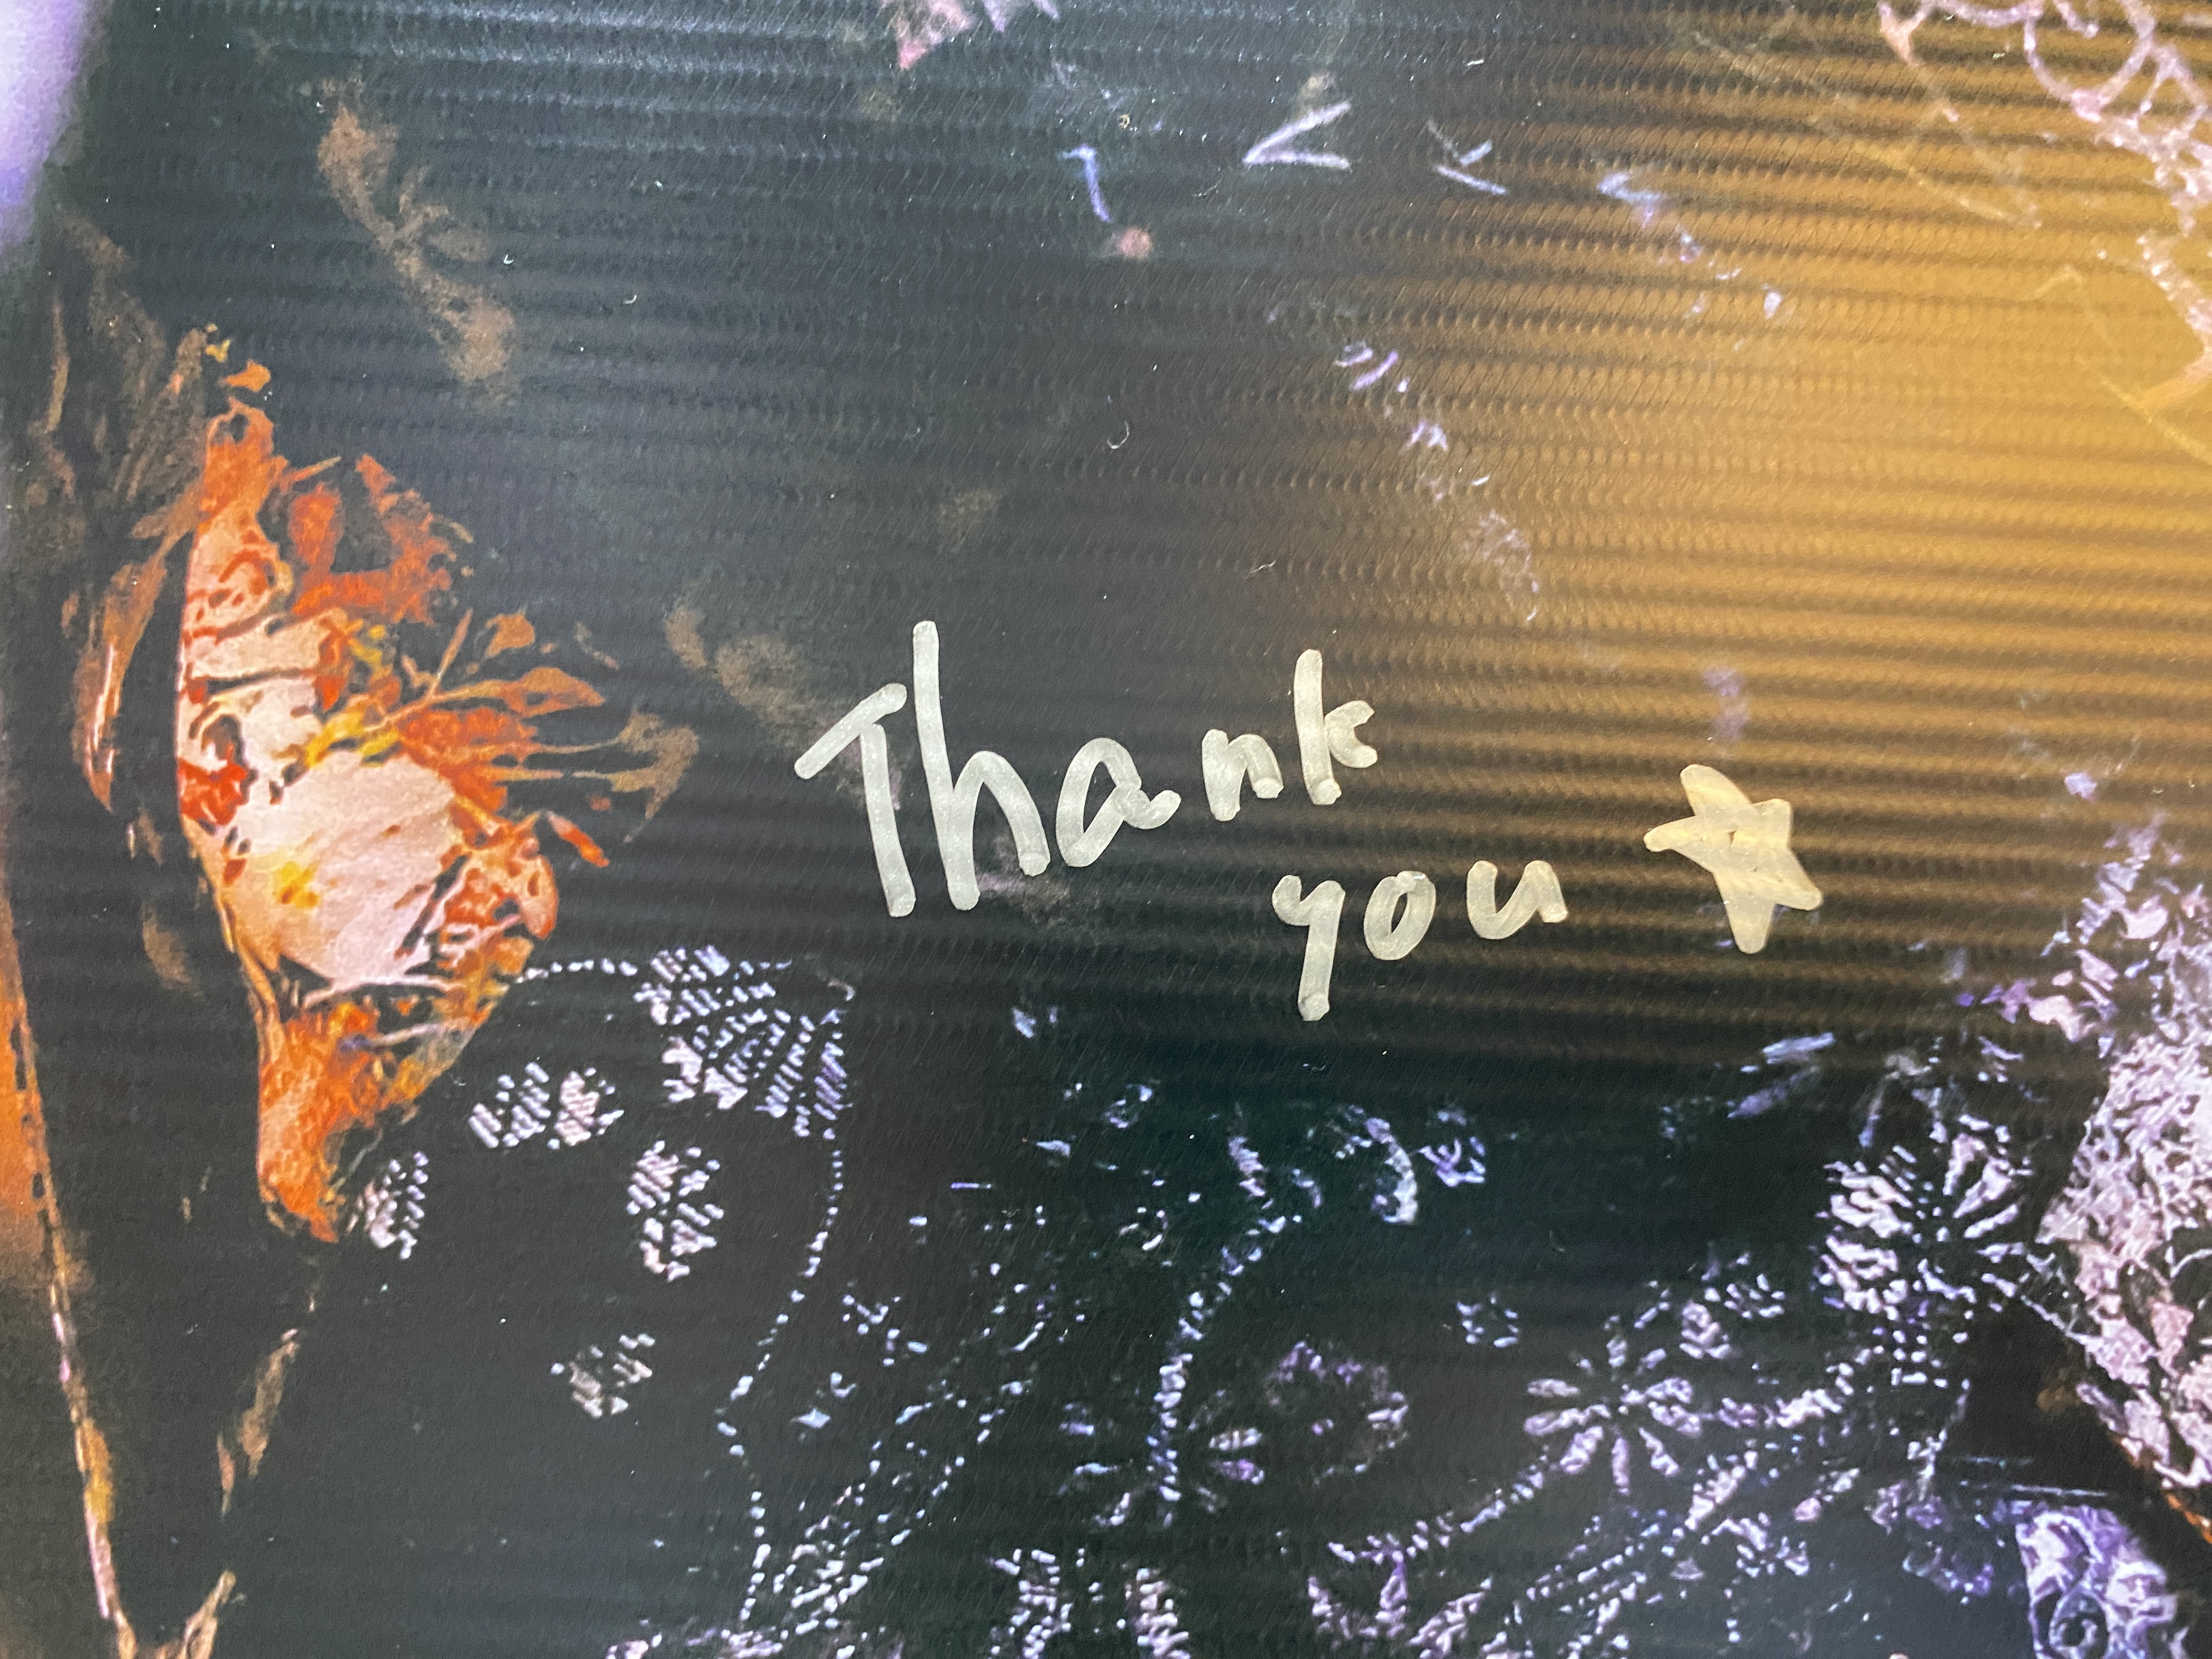 Thank
you ☆